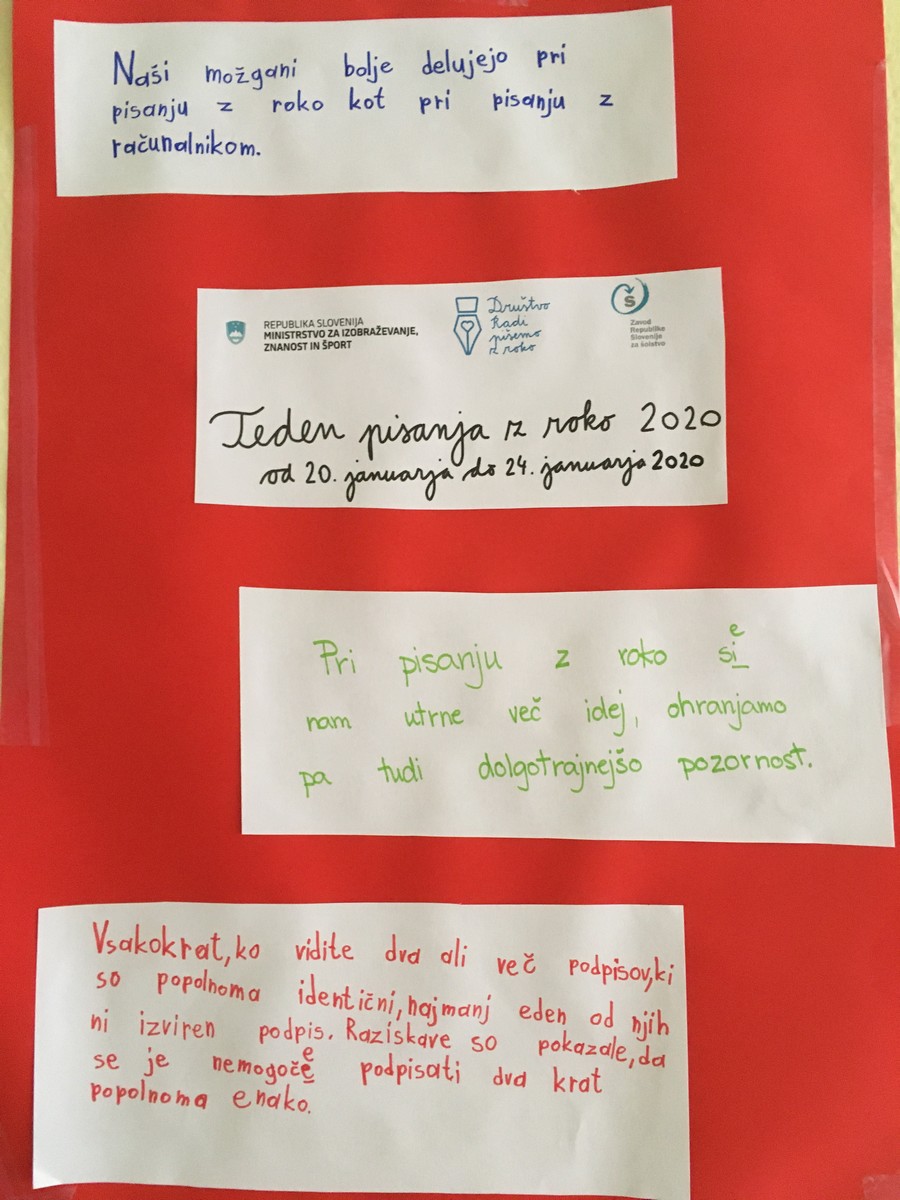 Naši možgani bolje delujejo pri
pisanju z roko kot pri pisanju z
računalnikom.
REPUBLIKA SLOVENIJA
MINISTRSTVO ZA IZOBRAŽEVANJE,
ZNANOST IN ŠPORT
Društvo
Radi
pišemo
z roko
Š
Zavod
Republike
Slovenije
za šolstvo
Teden pisanja z roko 2020
od 20. januarja do 24. januarja 2020
e
Pri pisanju z roko si
nam utrne več idej, ohranjamo
pa tudi dolgotrajnejšo pozornost.
Vsakokrat, ko vidite dva ali več podpisov, ki
so popolnoma identični, najmanj eden od njih
ni izviren podpis. Raziskave so pokazale, da
e
se je nemogoče podpisati dva krat
popolnoma enako.